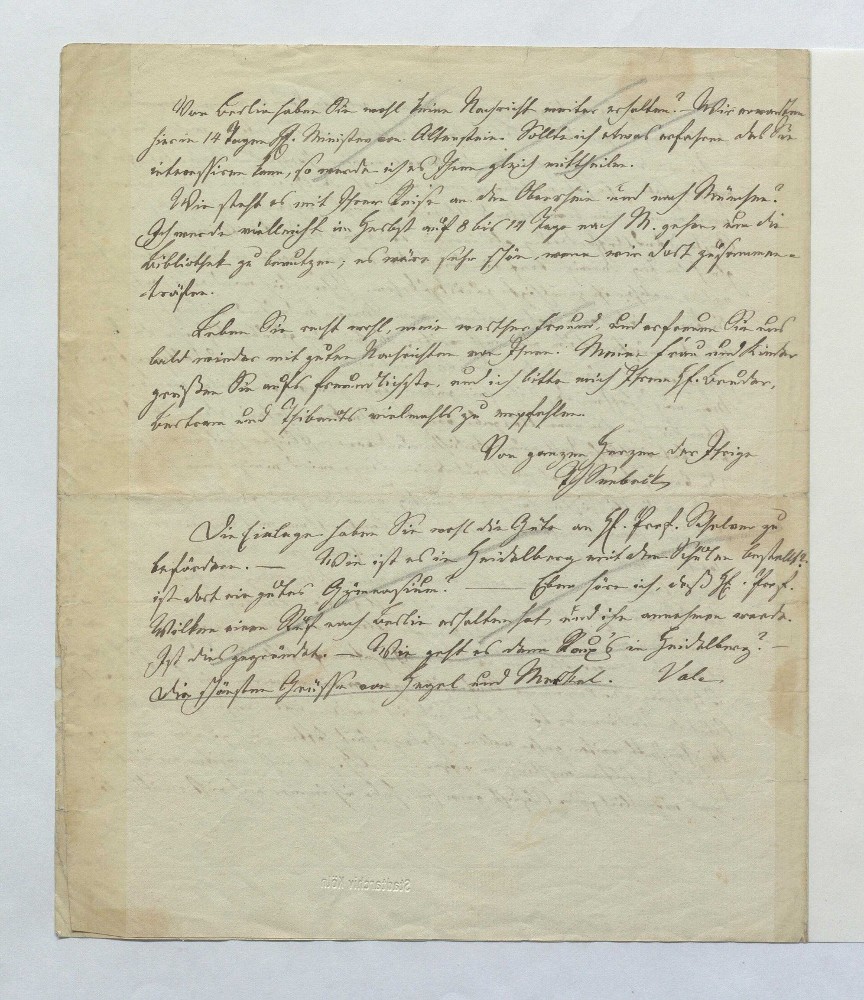 Von Berlin haben Sie wohl keine Nachricht weiter erhalten? – Wir erwarten
hier in 14 Tagen H. Minister von Altenstein. Sollte ich etwas erfahren das Sie
interessiren kann, so werde ich es Ihnen gleich mittheilen.
Wie steht es mit Ihrer Reise an den Oberrhein und nach München?
Ich werde vielleicht im Herbst auf 8 bis 14 Tage nach M. gehen, um die
Bibliothek zu benutzen; es wäre sehr schön, wenn wir dort zusammen=
träfen.
Leben Sie recht wohl, mein werther Freund, und erfreuen Sie uns
bald wieder mit guten Nachrichten von Ihnen. Meine Frau und Kinder
grüßen Sie aufs freundlichste, und ich bitte mich Ihrem H. Bruder,
Bertram und Thibauts vielmahls zu empfehlen.
Von ganzem Herzen der Ihrige
Seebeck
Die Einlage haben Sie wohl die Güte an H. Prof. Schelver zu
befördern. — Wie ist es in Heidelberg mit den Schulen bestellt?
ist dort ein gutes Gymnasium? — Eben höre ich, daß H. Prof.
Wilken einen Ruf nach Berlin erhalten hat und ihn annehmen werde.
Ist dies gegründet. — Wie geht es denn in Heidelberg? —
Die schönsten Grüsse von Hegel und Merkel. Vale
Stadtarchiv Köln